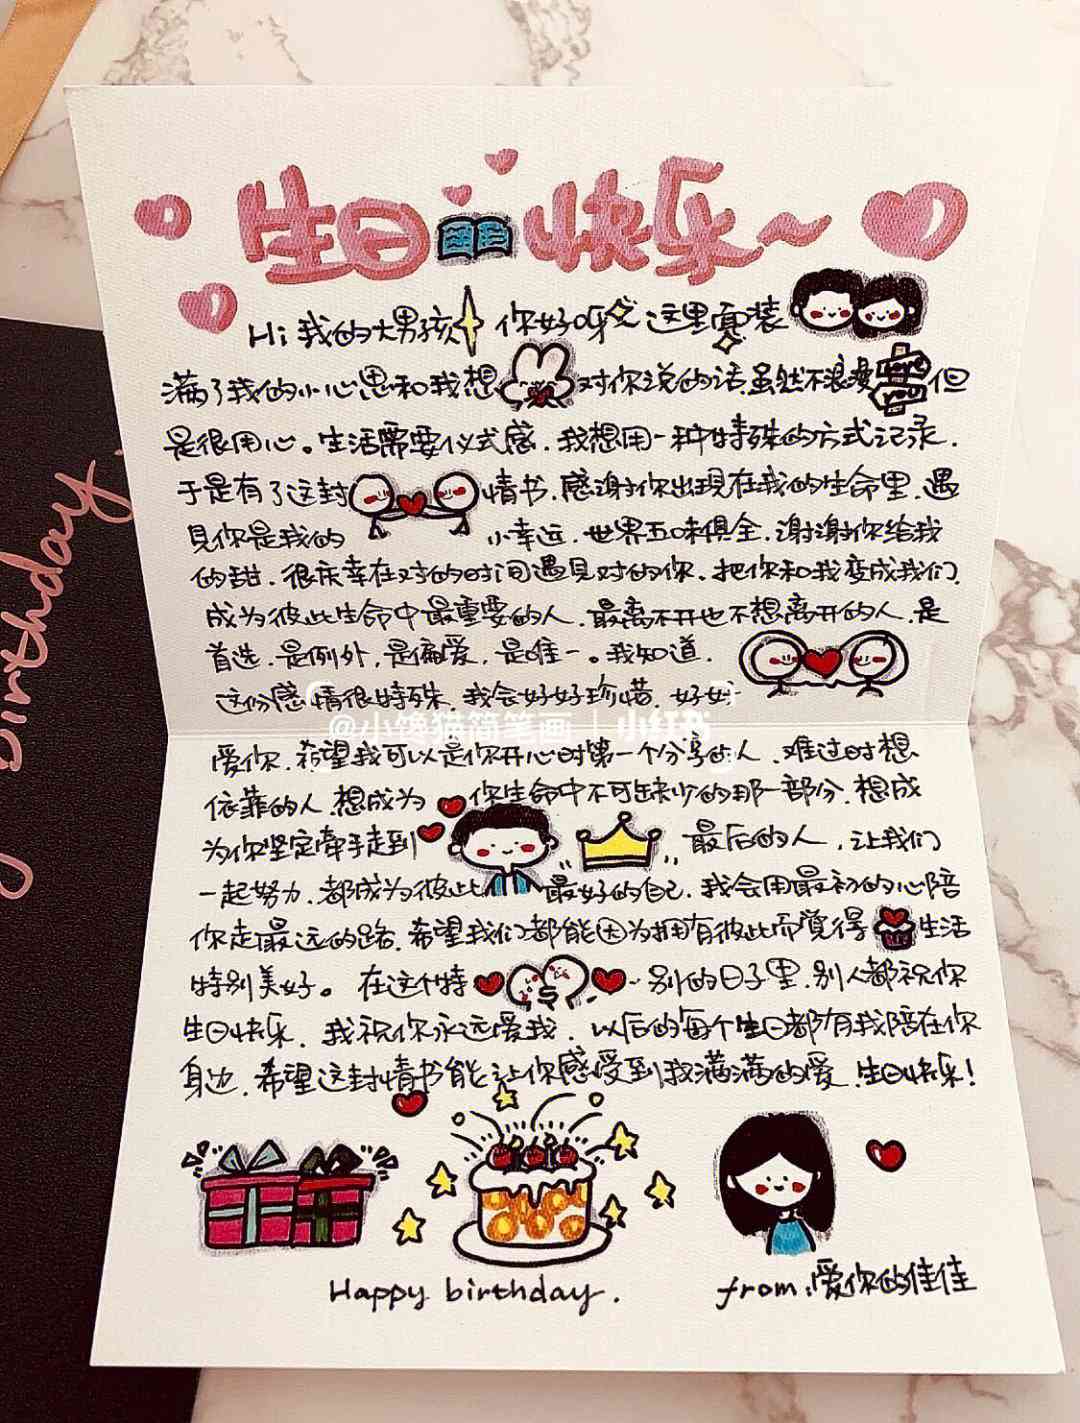 生日快乐~
Hi 我的大男孩 你好呀 这里面装
满了我的小心思和我想对你说的话.虽然不浪漫但
是很用心。生活需要仪式感.我想用一种特殊的方式记录.
于是有了这封情书.感谢你出现在我的生命里.遇
见你是我的小幸运.世界五味俱全.谢谢你给我
的甜.很庆幸在对的时间遇见对的你.把你和我变成我们.
成为彼此生命中最重要的人.最离不开也不想离开的人.是
首选.是例外.是偏爱.是唯一。我知道.
这份感情很特殊.我会好好珍惜.好好
@小馋猫简笔画 | 小红书
爱你.希望我可以是你开心时第一个分享的人.难过时想
依靠的人.想成为你生命中不可缺少的那一部分.想成
为你坚定牵手走到最后的人.让我们
一起努力.都成为彼此最好的自己.我会用最初的心陪
你走最远的路.希望我们都能因为拥有彼此而觉得生活
特别美好。在这个特别的日子里.别人都祝你
生日快乐.我祝你永远爱我.以后的每个生日都有我陪在你
身边.希望这封情书能让你感受到我满满的爱.生日快乐!
Happy birthday.
from:爱你的佳佳
birthday